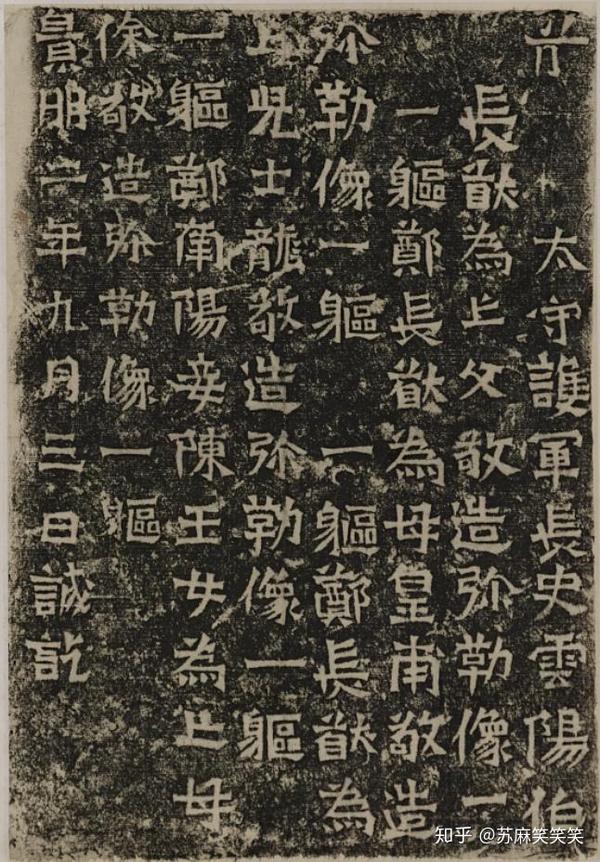 太守護軍長史雲陽伯
長猷為亡父敬造弥勒像一
一軀鄭長猷為母皇甫敬造
弥勒像一軀 一軀鄭長猷為
亡兒士龍敬造弥勒像一軀
一軀鄭南陽妾陳王女為亡母
徐敬造弥勒像一軀
景明二年九月三日誡訖
知乎 @苏麻笑笑笑